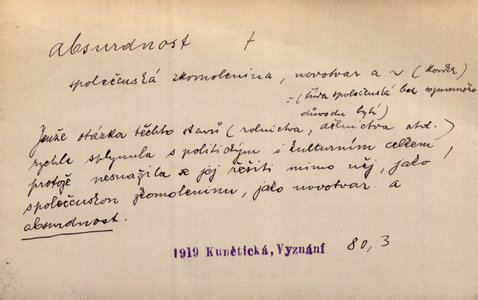 absurdnost +
společenská zkomolenina, novotvar a
= (třída společenská bez rozumného
důvodu bytí)
Jenže otázka těchto stavů (rolnictva, dělnictva atd.)
rychle splynula s politickým i kulturním celkem,
protože nesnažila se jej řešiti mimo něj, jako
společenskou zkomoleninu, jako novotvar a
absurdnost.
1919 Kunětická, Vyznání 80,3